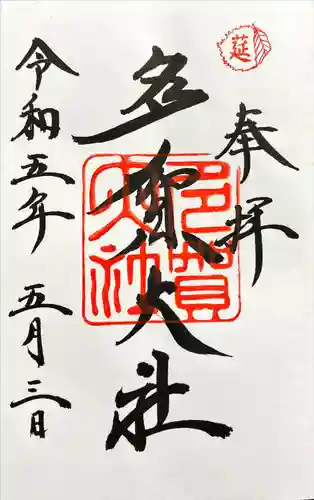 奉拝
多賀大社
令和五年 五月三日
莚
多賀大社